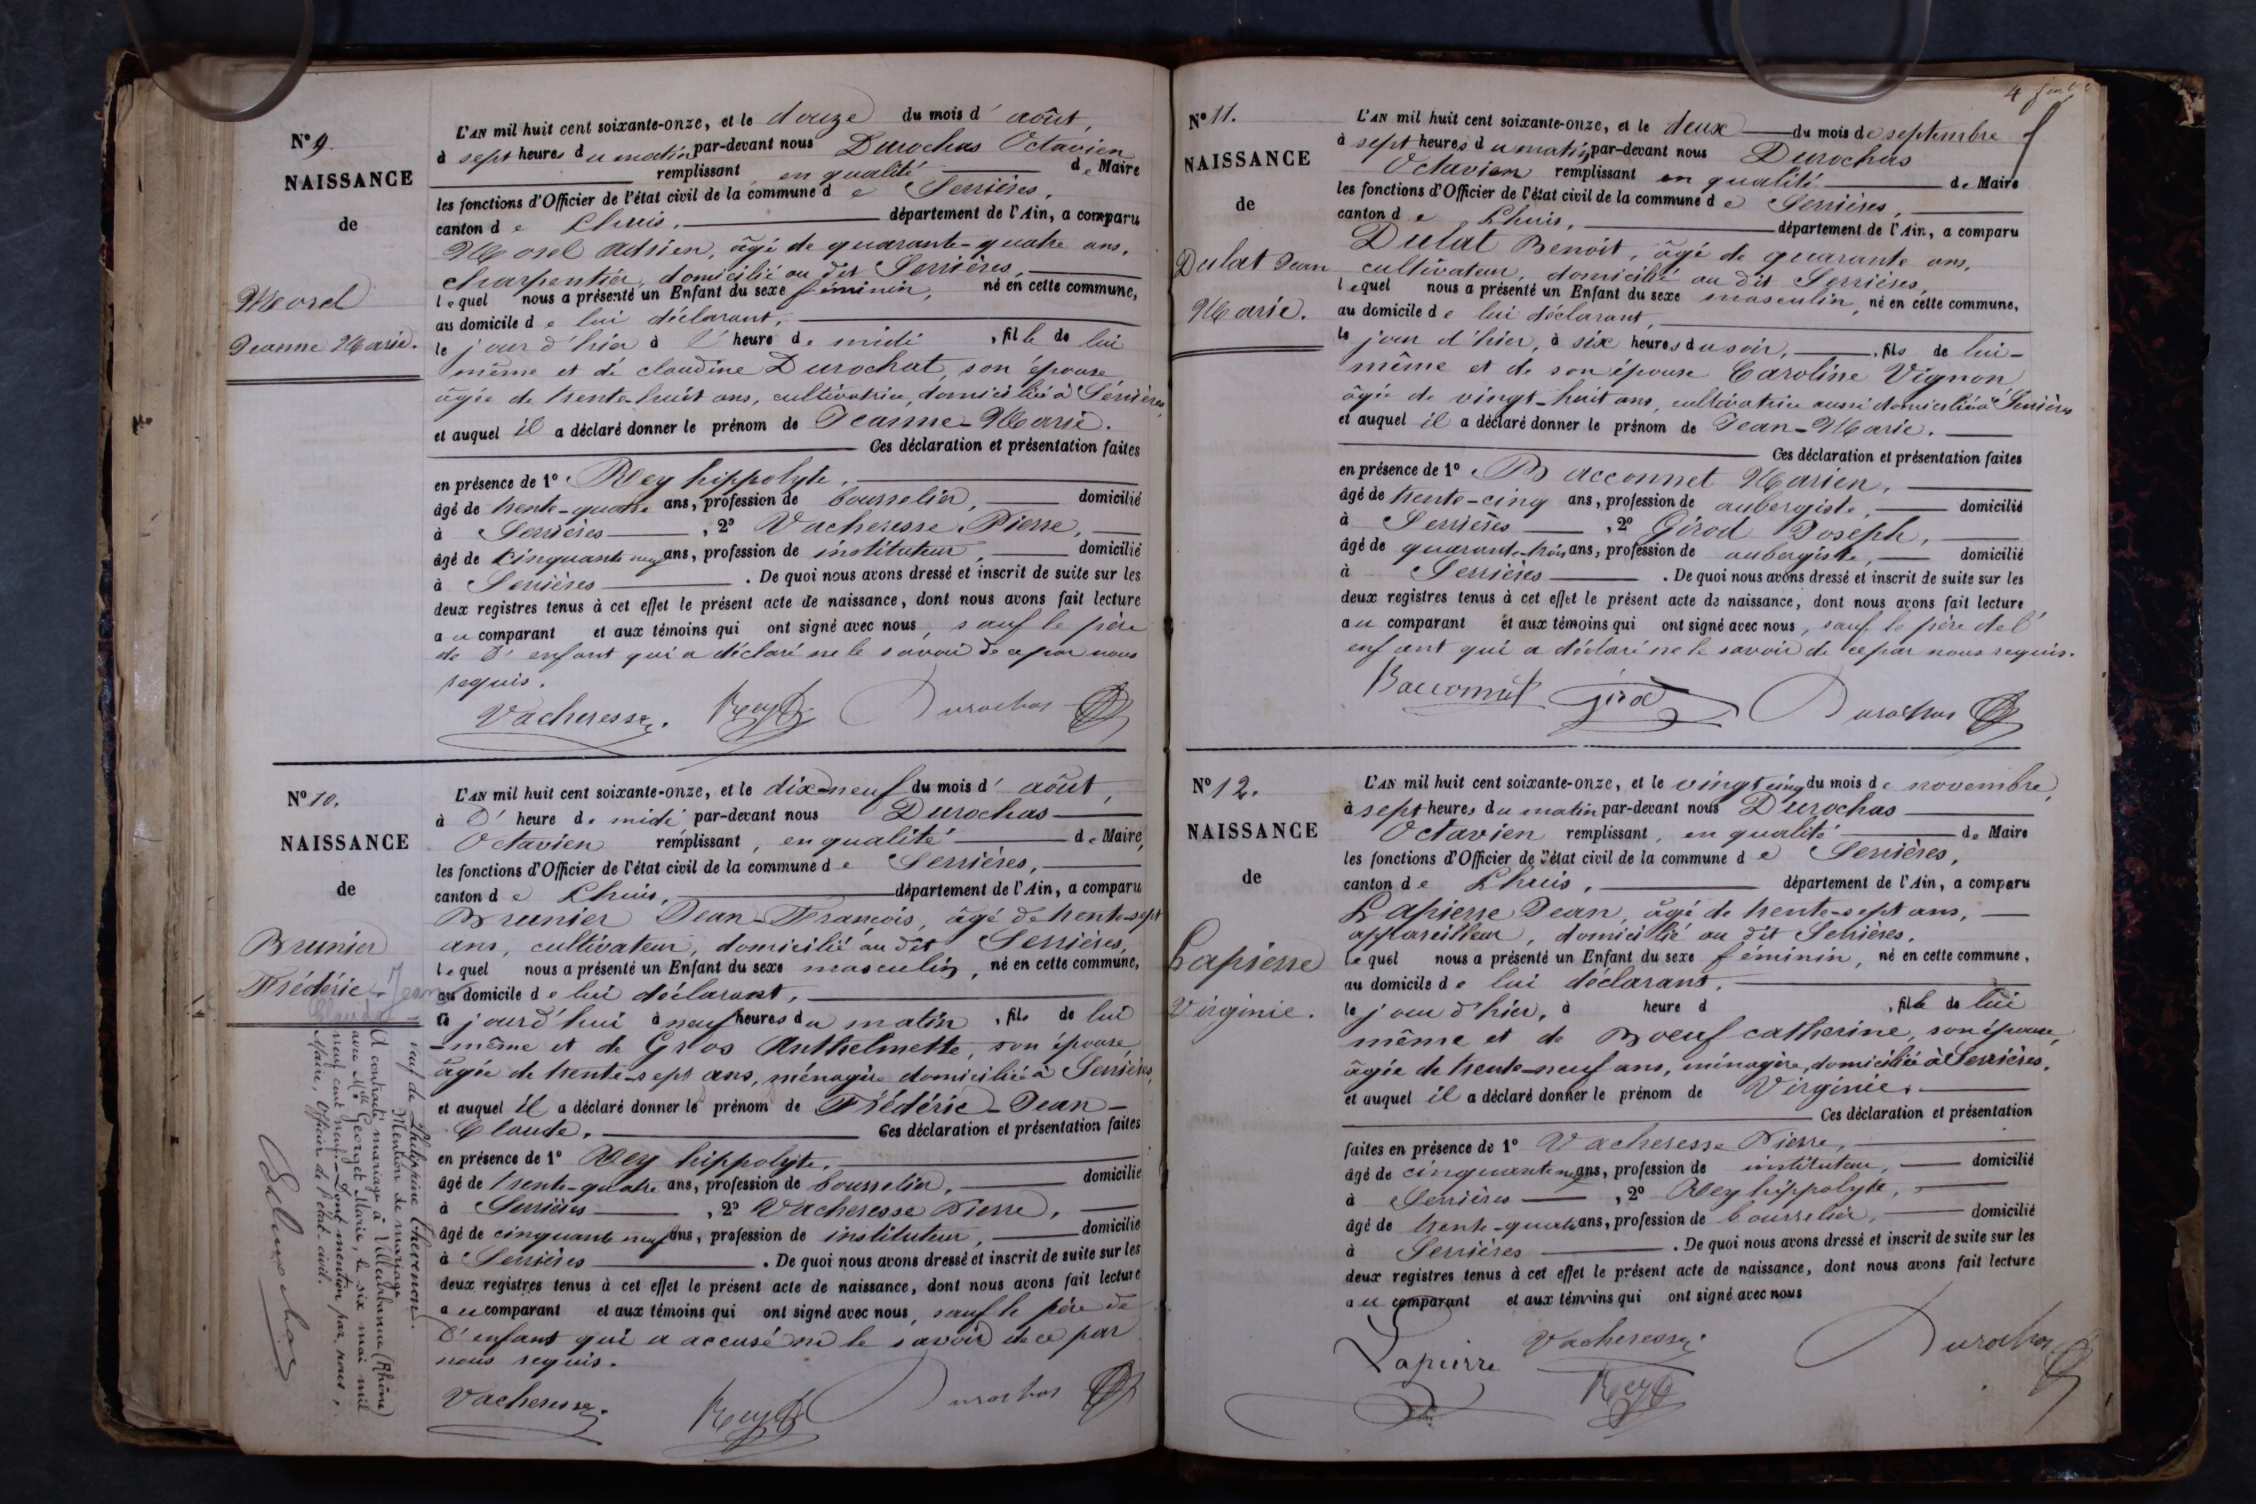 N° 9.
NAISSANCE
de
Morel
Jeanne Marie.
L'AN mil huit cent soixante-onze, et le douze du mois d'août,
à sept heures du matin par-devant nous Durochas Octavien
remplissant en qualité de Maire
les fonctions d'Officier de l'état civil de la commune de Serrières,
canton de Lhuis, département de l'Ain, a comparu
Morel Adrien, âgé de quarante-quatre ans,
charpentier, domicilié au dit Serrières,
lequel nous a présenté un Enfant du sexe féminin, né en cette commune,
au domicile de lui déclarant,
le jour d'hier à l'heure de midi, fille de lui
même et de claudine Durochat, son épouse
âgée de trente-huit ans, cultivatrice, domiciliée à Serrières,
et auquel il a déclaré donner le prénom de Jeanne-Marie.
Ces déclaration et présentation faites
en présence de 1° Rey hippolyte,
âgé de trente-quatre ans, profession de bourrelier, domicilié
à Serrières, 2° Vacheresse Pierre,
âgé de cinquante neuf ans, profession de instituteur, domicilié
à Serrières. De quoi nous avons dressé et inscrit de suite sur les
deux registres tenus à cet effet le présent acte de naissance, dont nous avons fait lecture
au comparant et aux témoins qui ont signé avec nous, sauf le père
de l'enfant qui a déclaré ne le savoir de ce par nous
requis.
Vacheresse. Rey h Durochas
N° 10.
NAISSANCE
de
Brunier
Frédéric-Jean
Claude
L'AN mil huit cent soixante-onze, et le dix-neuf du mois d'août,
à l'heure de midi par-devant nous Durochas
Octavien remplissant, en qualité de Maire,
les fonctions d'Officier de l'état civil de la commune de Serrières,
canton de Lhuis, département de l'Ain, a comparu
Brunier Jean-François, âgé de trente-sept
ans, cultivateur, domicilié au dit Serrières,
lequel nous a présenté un Enfant du sexe masculin, né en cette commune,
au domicile de lui déclarant,
ce jourd'hui à neuf heures du matin, fils de lui
-même et de Gros Anthelmette, son épouse,
âgée de trente-sept ans, ménagère domiciliée à Serrières,
et auquel il a déclaré donner le prénom de Frédéric-Jean-
Claude, Ces déclaration et présentation faites
en présence de 1° Rey hippolyte,
âgé de trente-quatre ans, profession de bourrelier, domicilié
à Serrières, 2° Vacheresse Pierre,
âgé de cinquante neuf ans, profession de instituteur, domicilié
à Serrières. De quoi nous avons dressé et inscrit de suite sur les
deux registres tenus à cet effet le présent acte de naissance, dont nous avons fait lecture
au comparant et aux témoins qui ont signé avec nous, sauf le père de
l'enfant qui a accusé ne le savoir de ce par
nous requis.
Vacheresse. Rey h Durochas
veuf de Philippine Thevenon.
Mention de mariage
A contracté mariage à Villeurbanne (Rhône)
avec Mlle Georget Marie, le six mai mil
neuf cent neuf. Dont mention par nous,
Maire, Officier de l'état-civil.
4 feuillet
N° 11.
NAISSANCE
de
Dulat Jean
Marie.
L'AN mil huit cent soixante-onze, et le deux du mois de septembre
à sept heures du matin, par-devant nous Durochas
Octavien remplissant en qualité de Maire
les fonctions d'Officier de l'état civil de la commune de Serrières,
canton de Lhuis, département de l'Ain, a comparu
Dulat Benoit, âgé de quarante ans,
cultivateur, domicilié au dit Serrières,
lequel nous a présenté un Enfant du sexe masculin, né en cette commune,
au domicile de lui déclarant,
le jour d'hier, à six heures du soir, fils de lui-
même et de son épouse Caroline Vignon
âgée de vingt-huit ans, cultivatrice aussi domiciliée à Serrières
et auquel il a déclaré donner le prénom de Jean-Marie.
Ces déclaration et présentation faites
en présence de 1° Bacconnet Marien,
âgé de trente-cinq ans, profession de aubergiste, domicilié
à Serrières, 2° Girod Joseph,
âgé de quarante-trois ans, profession de aubergiste, domicilié
à Serrières. De quoi nous avons dressé et inscrit de suite sur les
deux registres tenus à cet effet le présent acte de naissance, dont nous avons fait lecture
au comparant et aux témoins qui ont signé avec nous, sauf le père de l'
enfant qui a déclaré ne le savoir de ce par nous requis.
Bacconnet Girod Durochas
N° 12.
NAISSANCE
de
Lapierre
Virginie.
L'AN mil huit cent soixante-onze, et le vingt cinq du mois de novembre,
à sept heures du matin par-devant nous Durochas
Octavien remplissant, en qualité de Maire
les fonctions d'Officier de l'état civil de la commune de Serrières,
canton de Lhuis, département de l'Ain, a comparu
Lapierre Jean, âgé de trente-sept ans,
appareilleur, domicilié au dit Serrières.
Lequel nous a présenté un Enfant du sexe féminin, né en cette commune,
au domicile de lui déclarant,
le jour d'hier, à heure d , fille de lui
même et de Boeuf catherine, son épouse,
âgée de trente-neuf ans, ménagère, domiciliée à Serrières.
et auquel il a déclaré donner le prénom de Virginie.
Ces déclaration et présentation
faites en présence de 1° Vacheresse Pierre,
âgé de cinquante neuf ans, profession de instituteur, domicilié
à Serrières, 2° Rey hippolyte,
âgé de trente-quatre ans, profession de bourrelier, domicilié
à Serrières. De quoi nous avons dressé et inscrit de suite sur les
deux registres tenus à cet effet le présent acte de naissance, dont nous avons fait lecture
au comparant et aux témoins qui ont signé avec nous
Lapierre Vacheresse Rey h Durochas